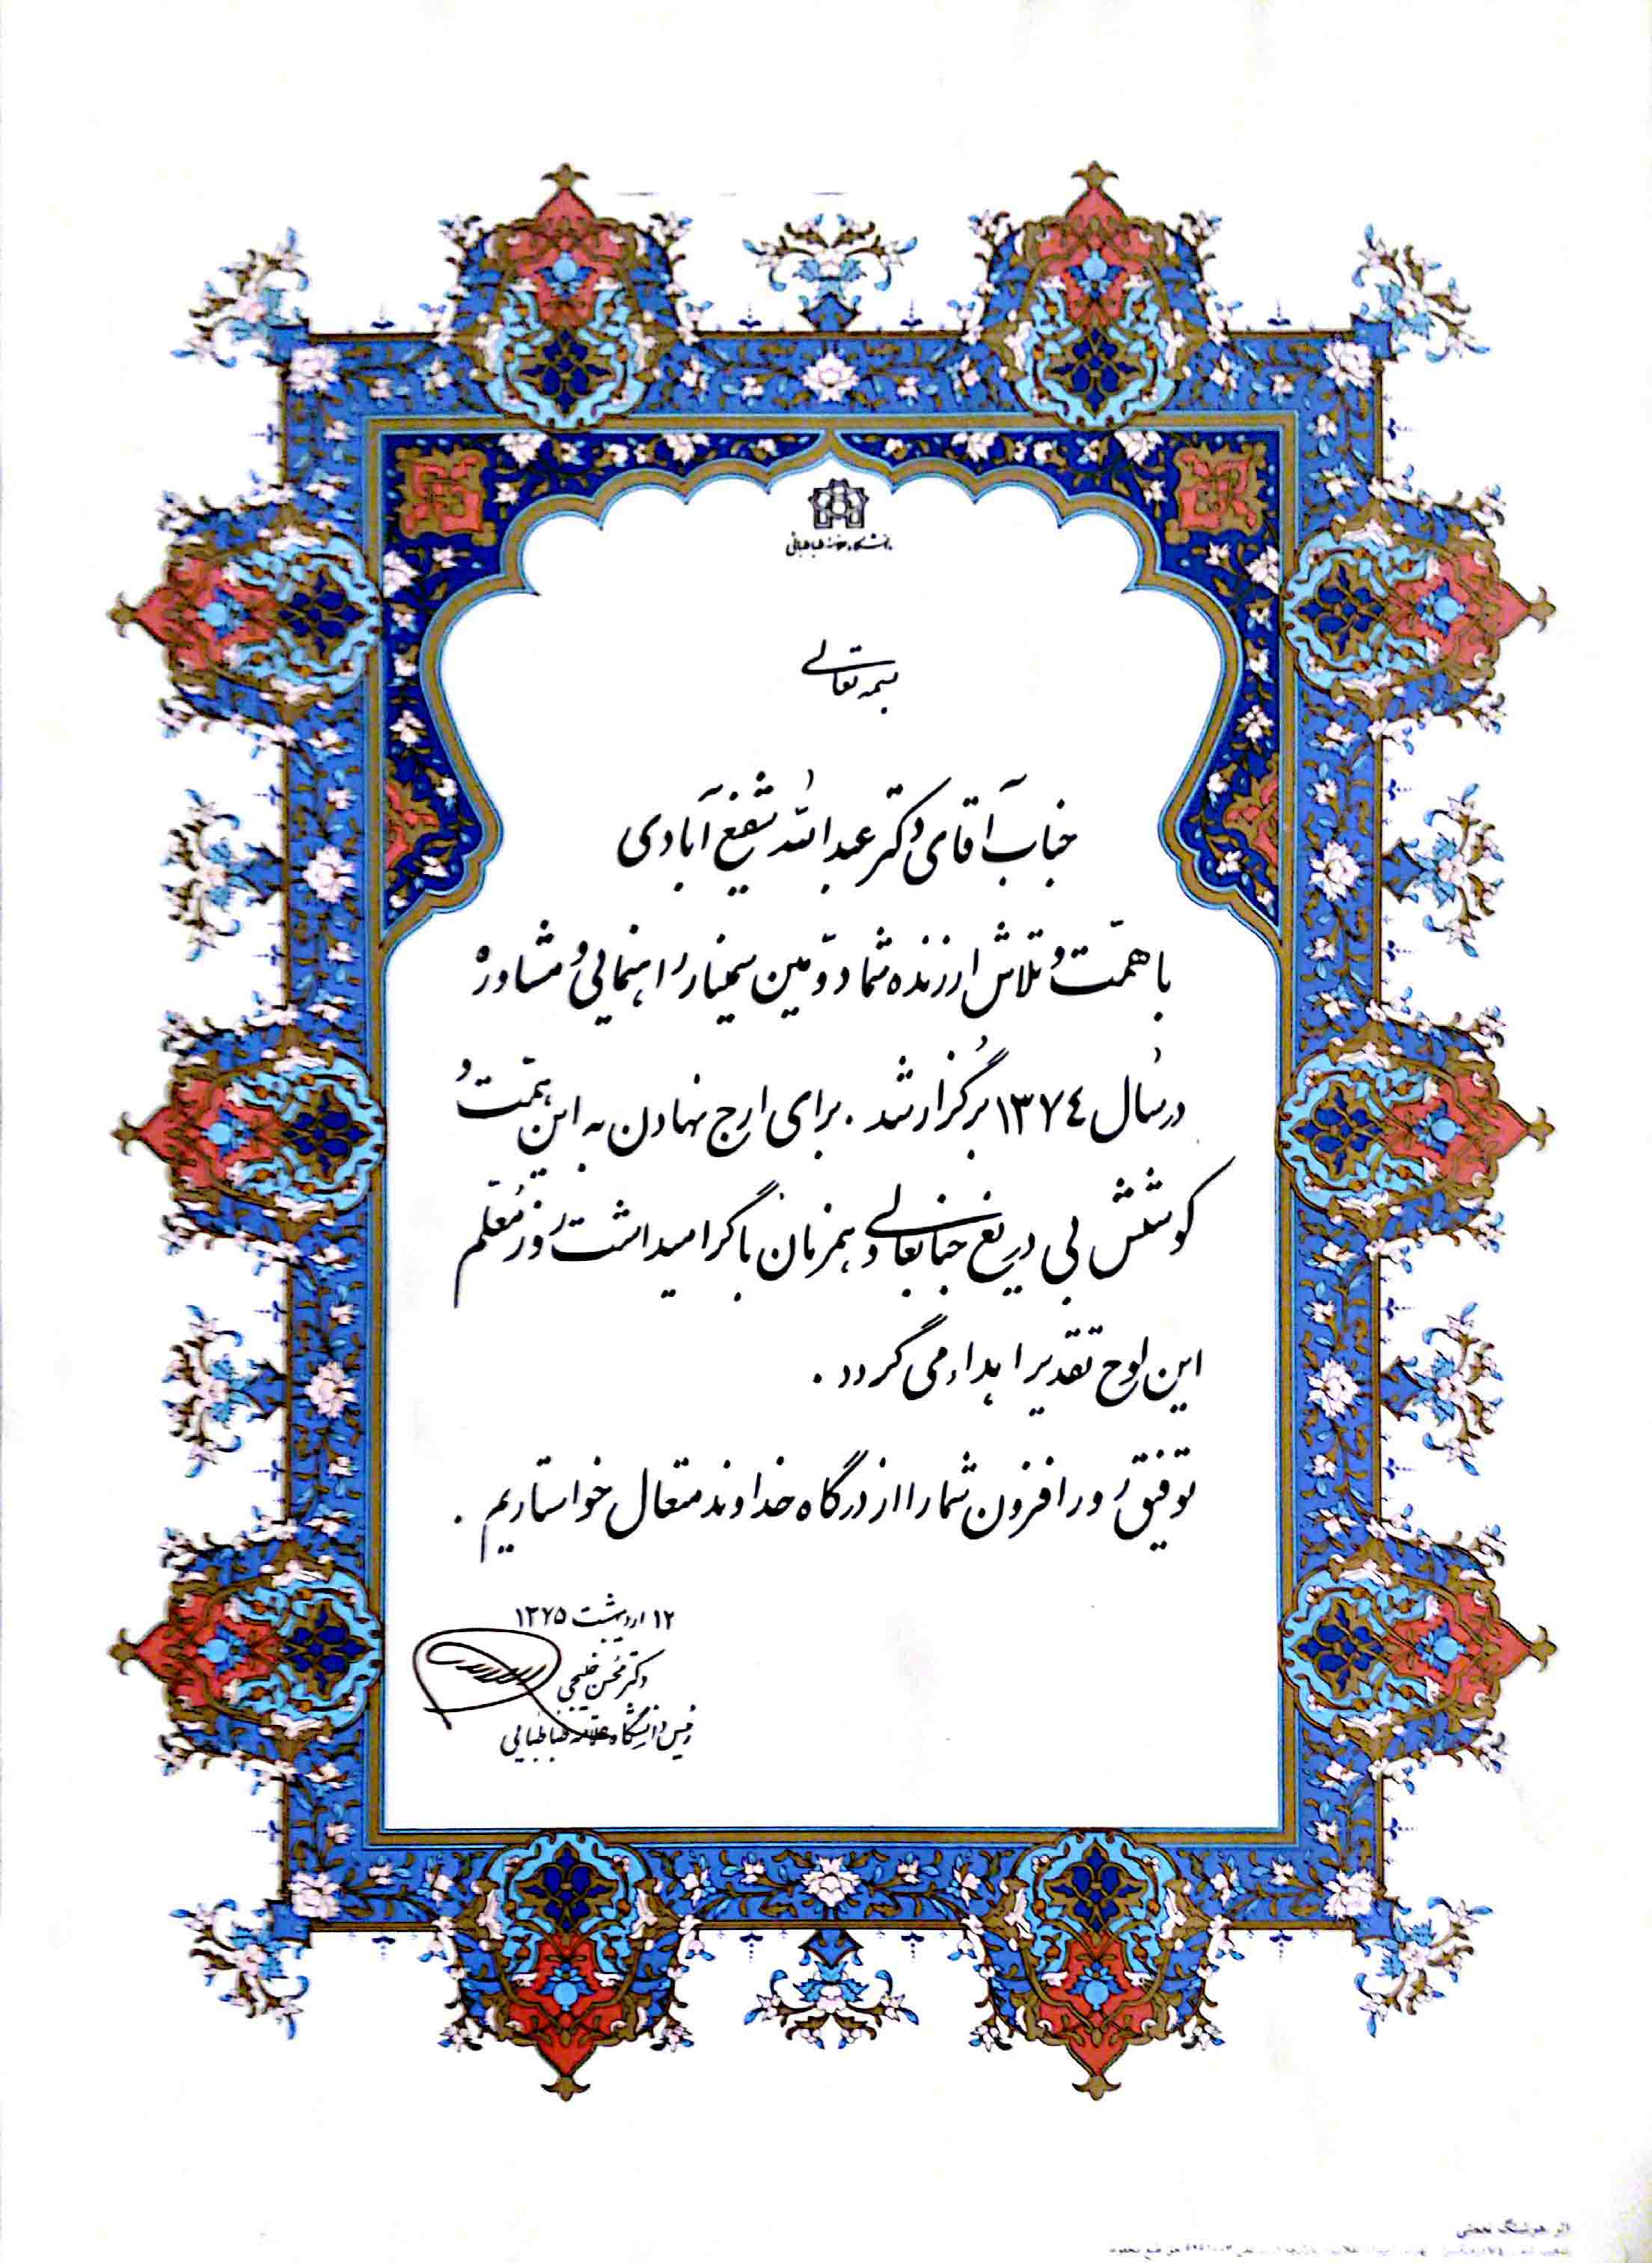 دانشگاه علامه طباطبائی
بسمه تعالی
جناب آقای دکتر عبدالله شفیع آبادی
با همّت و تلاش ارزنده شما دوّمین سمینار راهنمایی و مشاوره
در سال ۱۳۷۴ برگزار شد . برای ارج نهادن به این همّت و
کوشش بی دریغ جنابعالی و همزمان با گرامیداشت روز معلّم
این لوح تقدیر اهداء می گردد .
توفیق روز افزون شما را از درگاه خداوند متعال خواستاریم .
۱۲ اردیبهشت ۱۳۷۵
دکتر محسن خلیجی
رئیس دانشگاه علامه طباطبایی
اثر هوشنگ